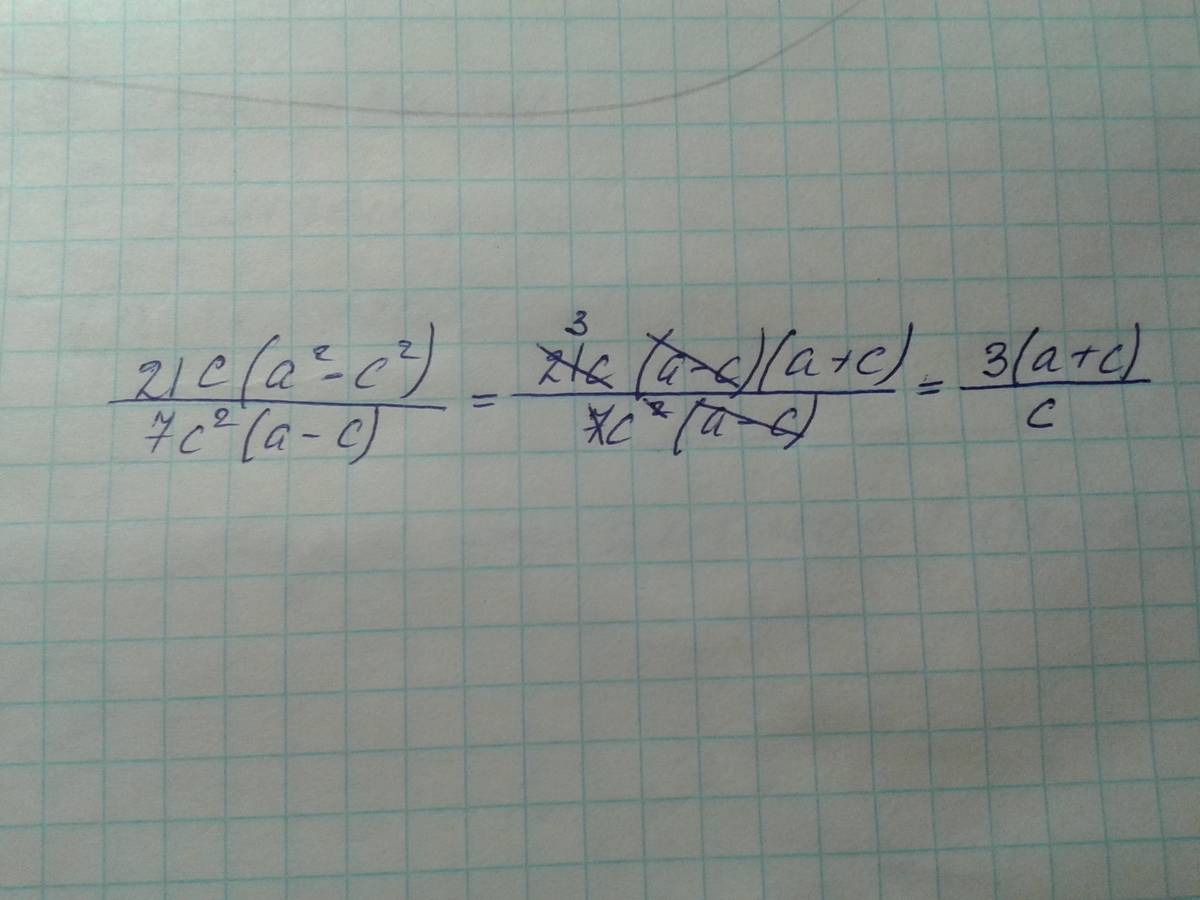 21c(a²-c²)/7c²(a-c) = 3 21c(a-c)(a+c)/7c²(a-c) = 3(a+c)/c